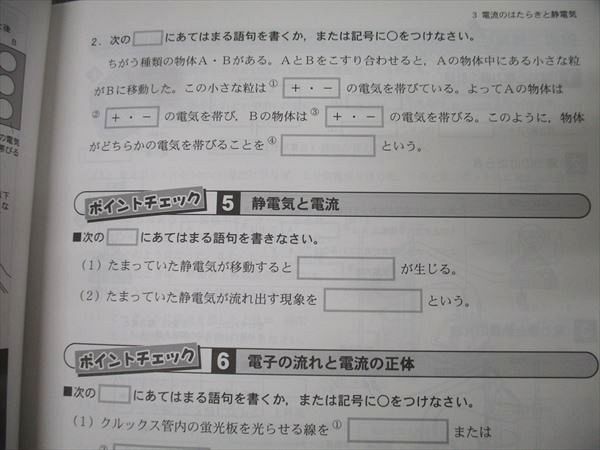 3 電流のはたらきと静電気
2. 次の□にあてはまる語句を書くか，または記号に○をつけなさい。
ちがう種類の物体A・Bがある。AとBをこすり合わせると，Aの物体中にある小さな粒
がBに移動した。この小さな粒は① ＋・－ の電気を帯びている。よってAの物体は
② ＋・－ の電気を帯び，Bの物体は③ ＋・－ の電気を帯びる。このように，物体
がどちらかの電気を帯びることを④ という。
ポイントチェック 5 静電気と電流
■次の□にあてはまる語句を書きなさい。
（1）たまっていた静電気が移動すると が生じる。
（2）たまっていた静電気が流れ出す現象を という。
ポイントチェック 6 電子の流れと電流の正体
■次の□にあてはまる語句を書くか，または記号に○をつけなさい。
（1）クルックス管内の蛍光板を光らせる線を① または
B